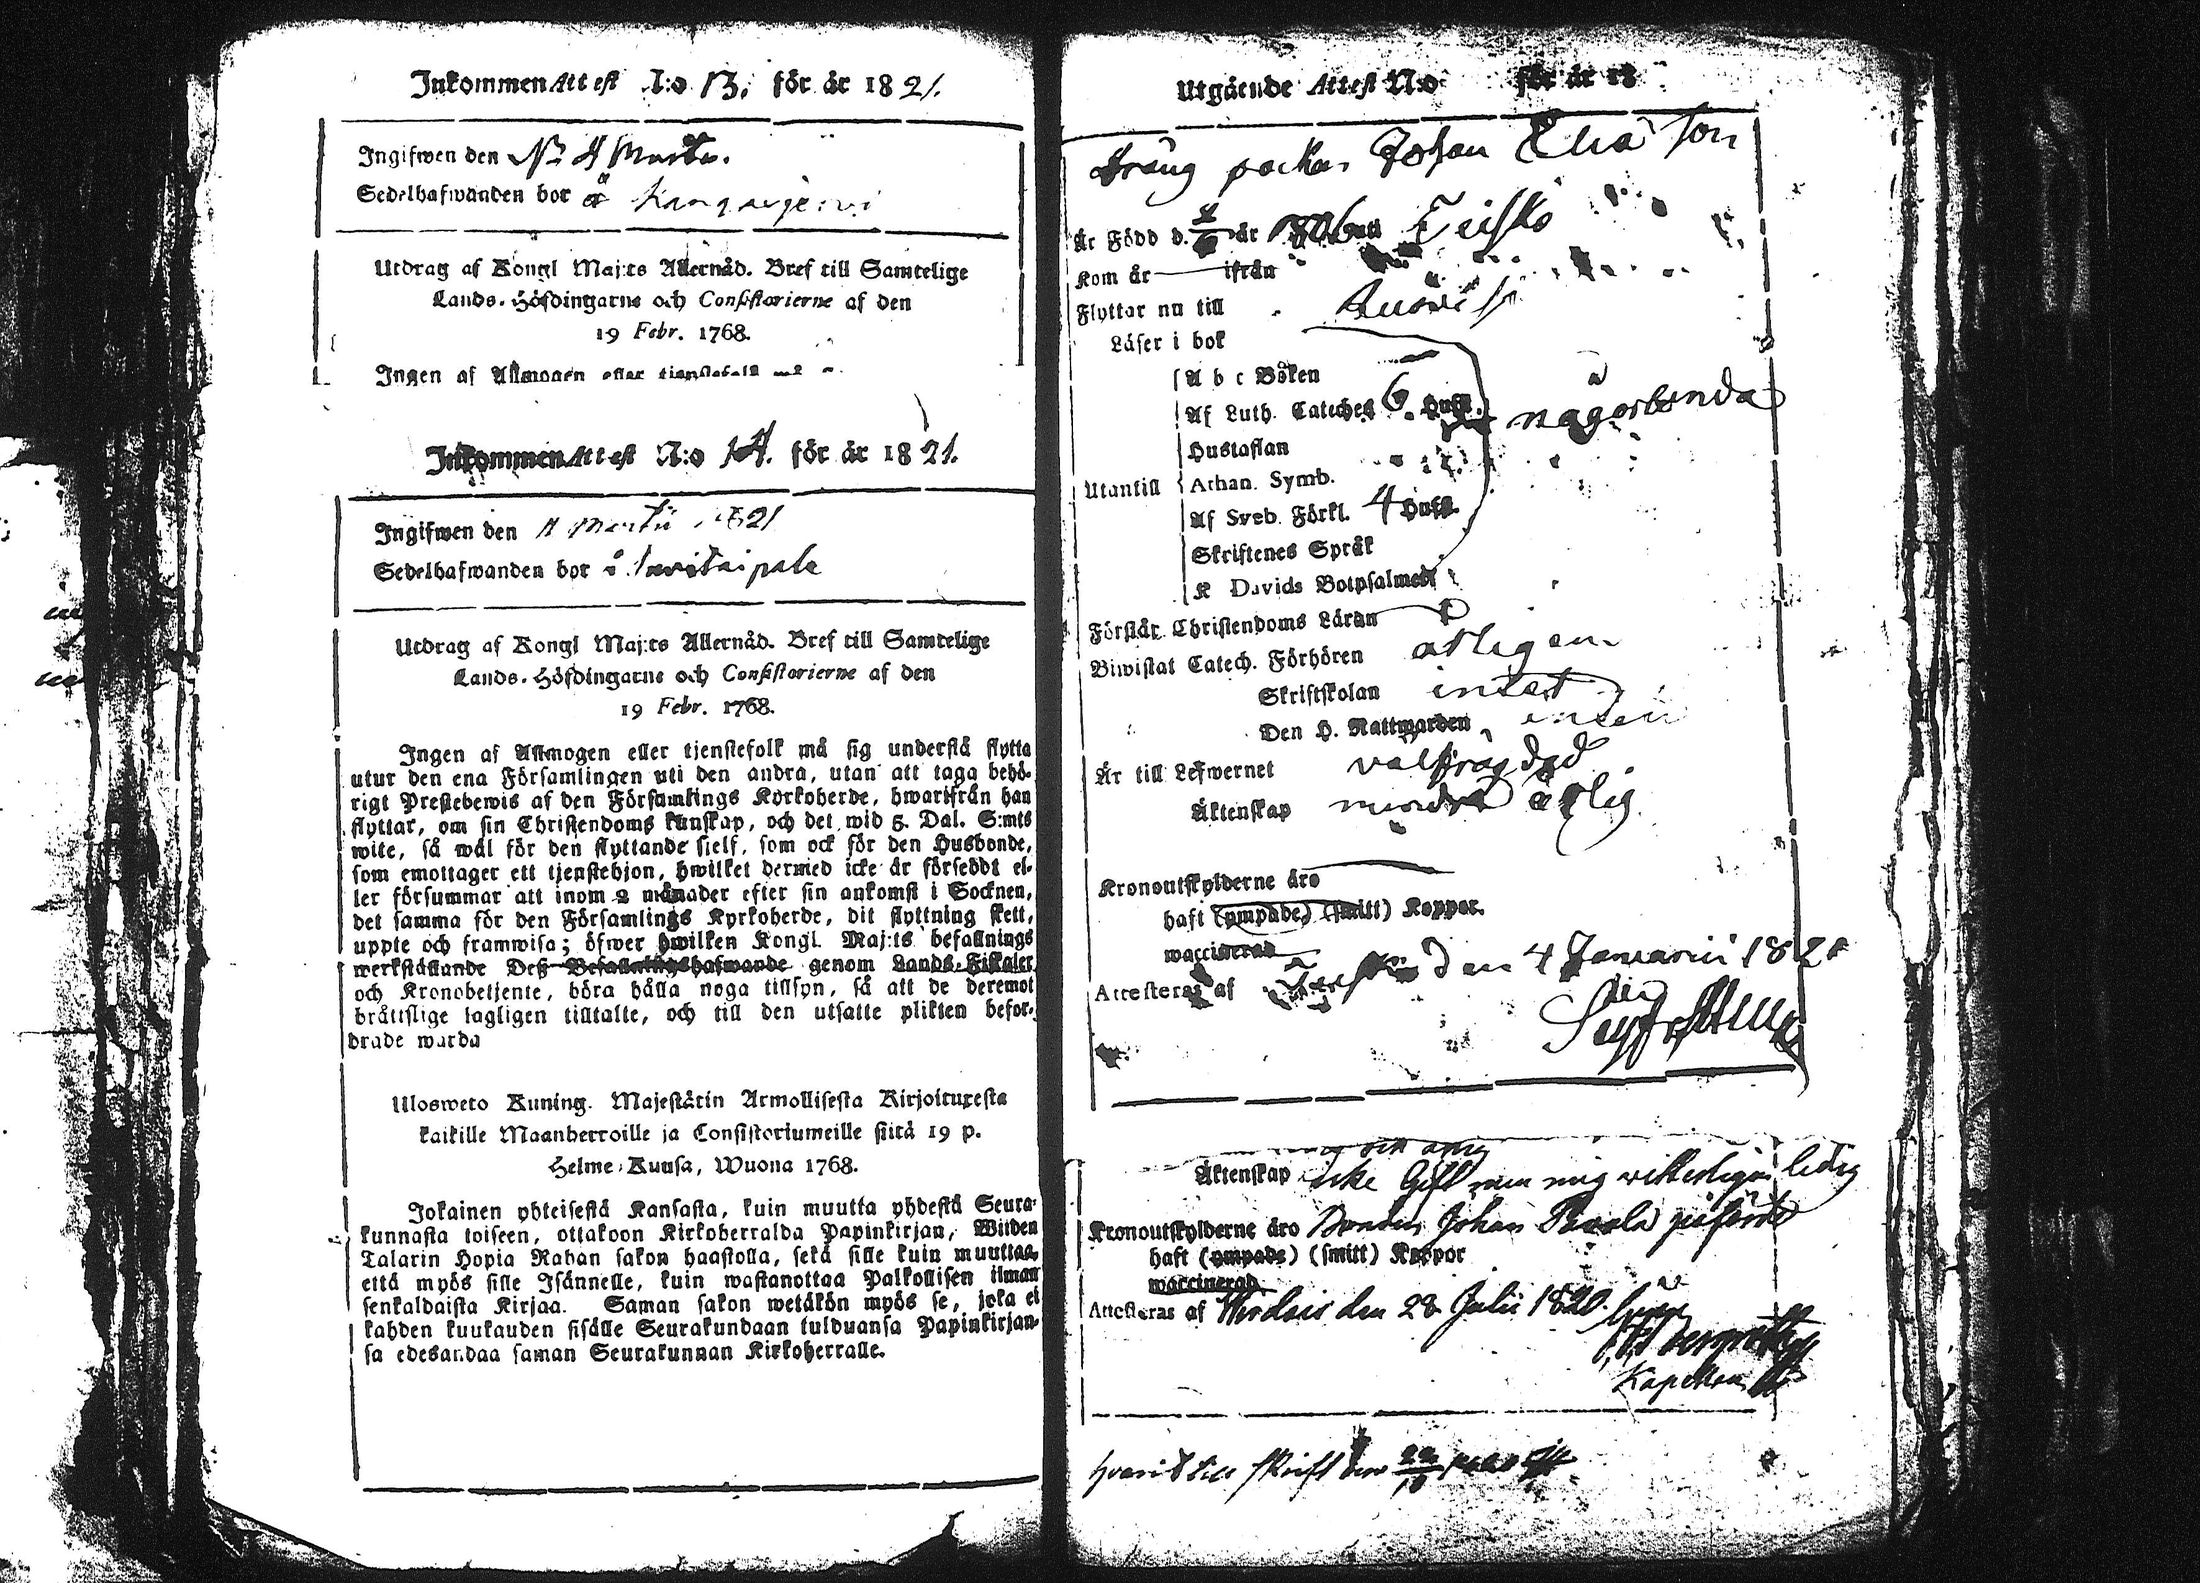 Inkommen Attest N:o 13. för år 1821.
Ingifwen den 4 Martii.
Sedelhafwanden bor å Kangasjerwi
Utdrag af Kongl Maj:ts Allernåd. Bref till Samtelige
Lands-Höfdingarne och Consistorierne af den
19 Febr. 1768.
Ingen af Allmogen eller tjenstefolk må
Inkommen Attest N:o 14. för år 1821.
Ingifwen den 11 Martii 1821
Sedelhafwanden bor i Savitaipale
Utdrag af Kongl Maj:ts Allernåd. Bref till Samtelige
Lands-Höfdingarne och Consistorierne af den
19 Febr. 1768.
Ingen af Allmogen eller tjenstefolk må sig understå flytta
utur den ena Församlingen uti den andra, utan att taga behö-
rigt Prestebewis af den Församlings Kyrkoherde, hwarifrån han
flyttar, om sin Christendoms kunskap, och det wid 5. Dal. S:mts
wite, så wäl för den flyttande sielf, som ock för den Husbonde,
som emottager ett tjenstehjon, hwilket dermed icke är förseddt el-
ler försummar att inom 2 månader efter sin ankomst i Socknen,
det samma för den Församlings Kyrkoherde, dit flyttning skett,
uppte och framwisa; öfwer hwilken Kongl. Maj:ts befallnings
werkställande Deß Befallningshafwande genom Lands-Fiskaler
och Kronobetjente, böra hålla noga tillsyn, så att de deremot
bråttslige lagligen tilltalte, och till den utsatte plikten befor-
drade warda
Ulosweto Kuning. Majestätin Armollisesta Kirjoituxesta
kaikille Maanherroille ja Consistoriumeille siitä 19 p.
Helme-Kuusa, Wuona 1768.
Jokainen yhteisestä Kansasta, kuin muutta yhdestä Seura-
kunnasta toiseen, ottakoon Kirkoherralda Papinkirjan, Wiiden
Talarin Hopia Rahan sakon haastolla, sekä sille kuin muuttaa,
että myös sille Isännelle, kuin wastanottaa Palkollisen ilman
senkaldaista Kirjaa. Saman sakon wetäkön myös se, joka ei
kahden kuukauden sisälle Seurakundaan tulduansa Papinkirjan-
sa edesandaa saman Seurakunnan Kirkoherralle.
Utgående Attest N:o för år 18
Dräng Johan Elia son
Är Född d. år 1806 uti Teisko
Kom år ifrån
Flyttar nu till
Läser i bok
A b c Boken
Af Luth. Cateches 6 Huf. någorlunda
Hustaflan
Utantill Athan. Symb.
Af Sveb. Förkl. 4 Huf.
Skriftenes Språk
K Davids Botpsalmer
Förstår Christendoms Läran
Biwistat Catech. Förhören årligen
Skriftskolan intet
Den H. Nattwarden
Är till Lefwernet välfrägdad
Äktenskap
Kronoutskylderne äro
haft (ympade) (smitt) Koppor.
waccinerad
Attesteras af den 4 Januarii 182
Äktenskap icke Gift men mig vitterligen ledig
Kronoutskylderne äro Bonden Johan
haft (ympade) (smitt) Koppor
waccinerad
Attesteras af Wirdois den 28 Julii 1820.
Kapellan
till skrift den 22/10